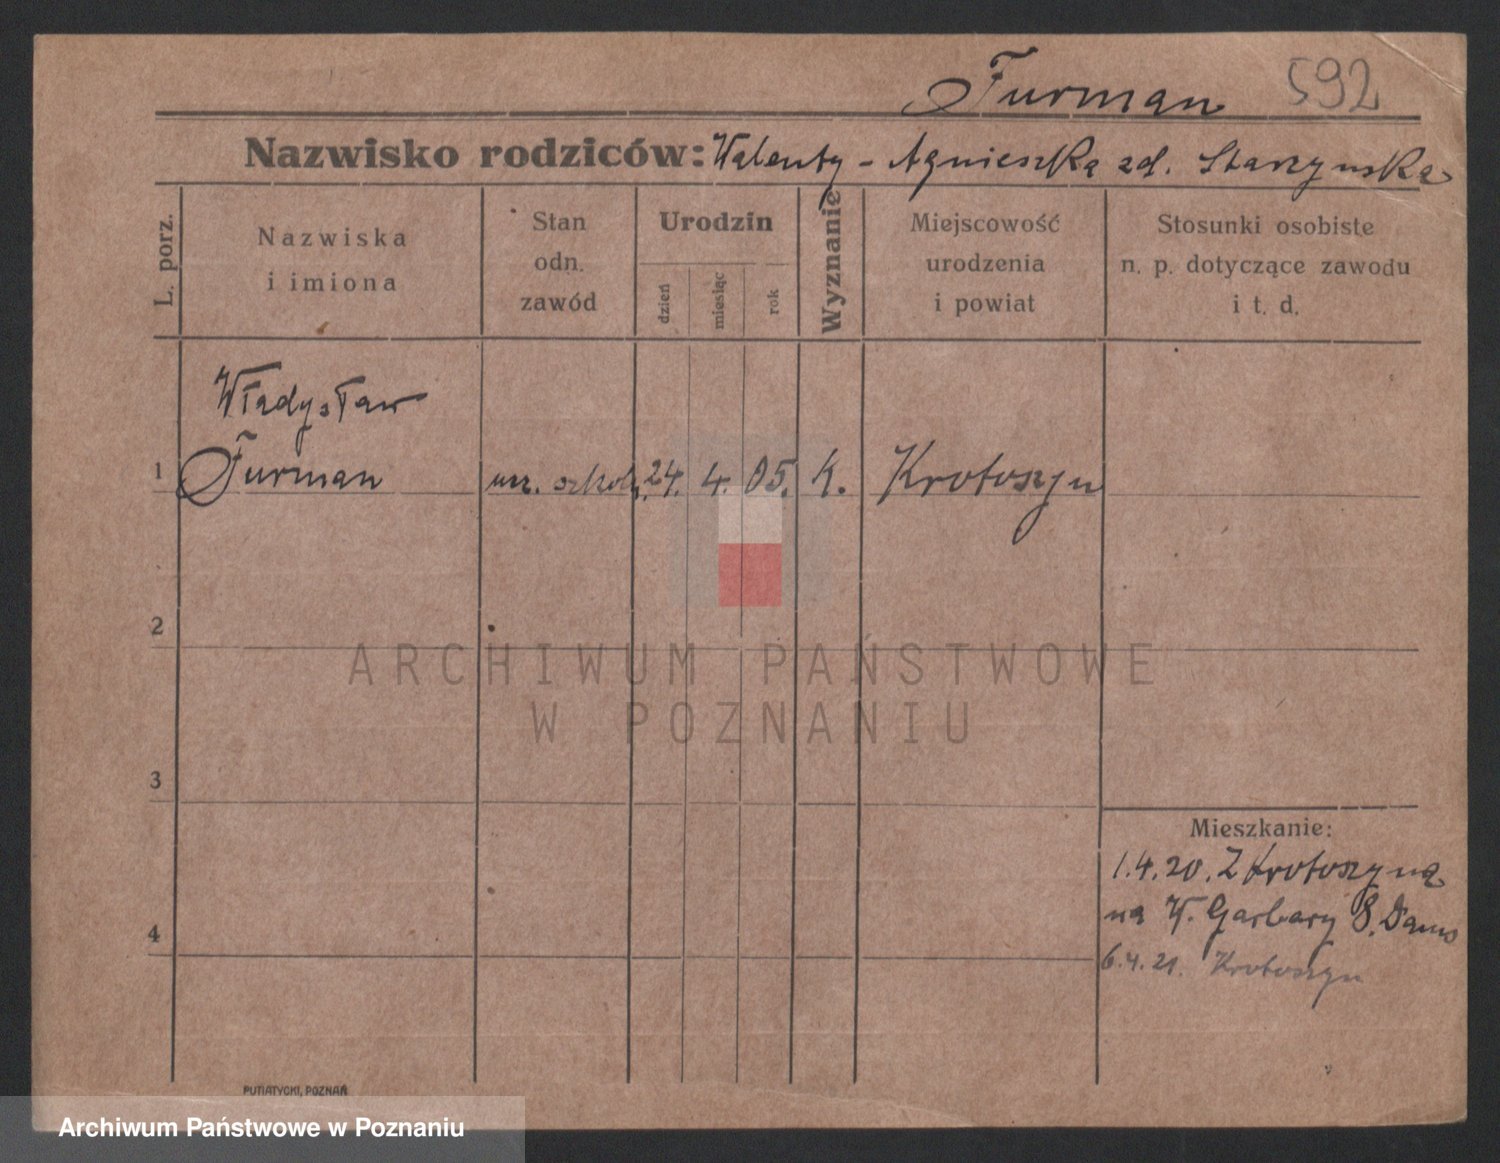 Furman 592
Nazwisko rodziców: Walenty - Agnieszka zd. Starzynska
L. porz.
Nazwiska
i imiona
Stan
odn.
zawód
Urodzin
dzień
miesiąc
rok
Wyznanie
Miejscowość
urodzenia
i powiat
Stosunki osobiste
n. p. dotyczące zawodu
i t. d.
Władysław
1 Furman ucz. szkoln. 24. 4. 05. K. Krotoszyn
2
3
4
Mieszkanie:
1.4.20. Z Krotoszyna
na W. Garbary 8.
6.4.21. Krotoszyn
PUTIATYCKI, POZNAŃ
ARCHIWUM PAŃSTWOWE
W POZNANIU
Archiwum Państwowe w Poznaniu